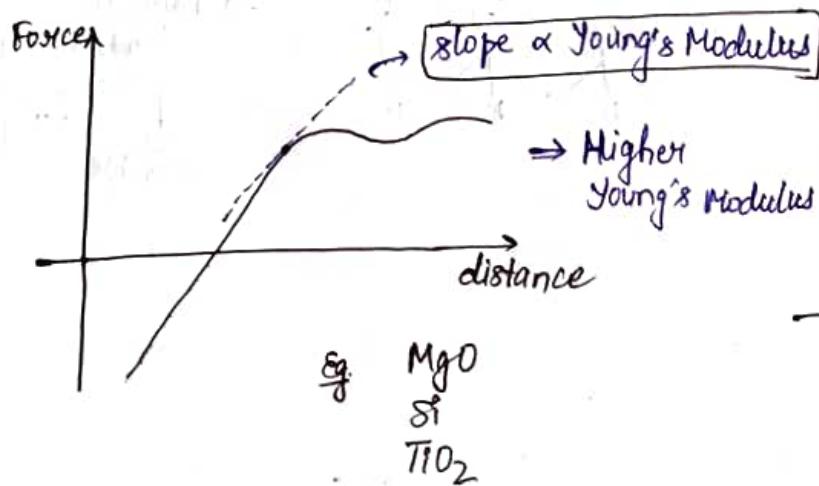 Force
slope ∝ Young's Modulus
⇒ Higher
Young's Modulus
distance
Eg. MgO
Si
TiO2